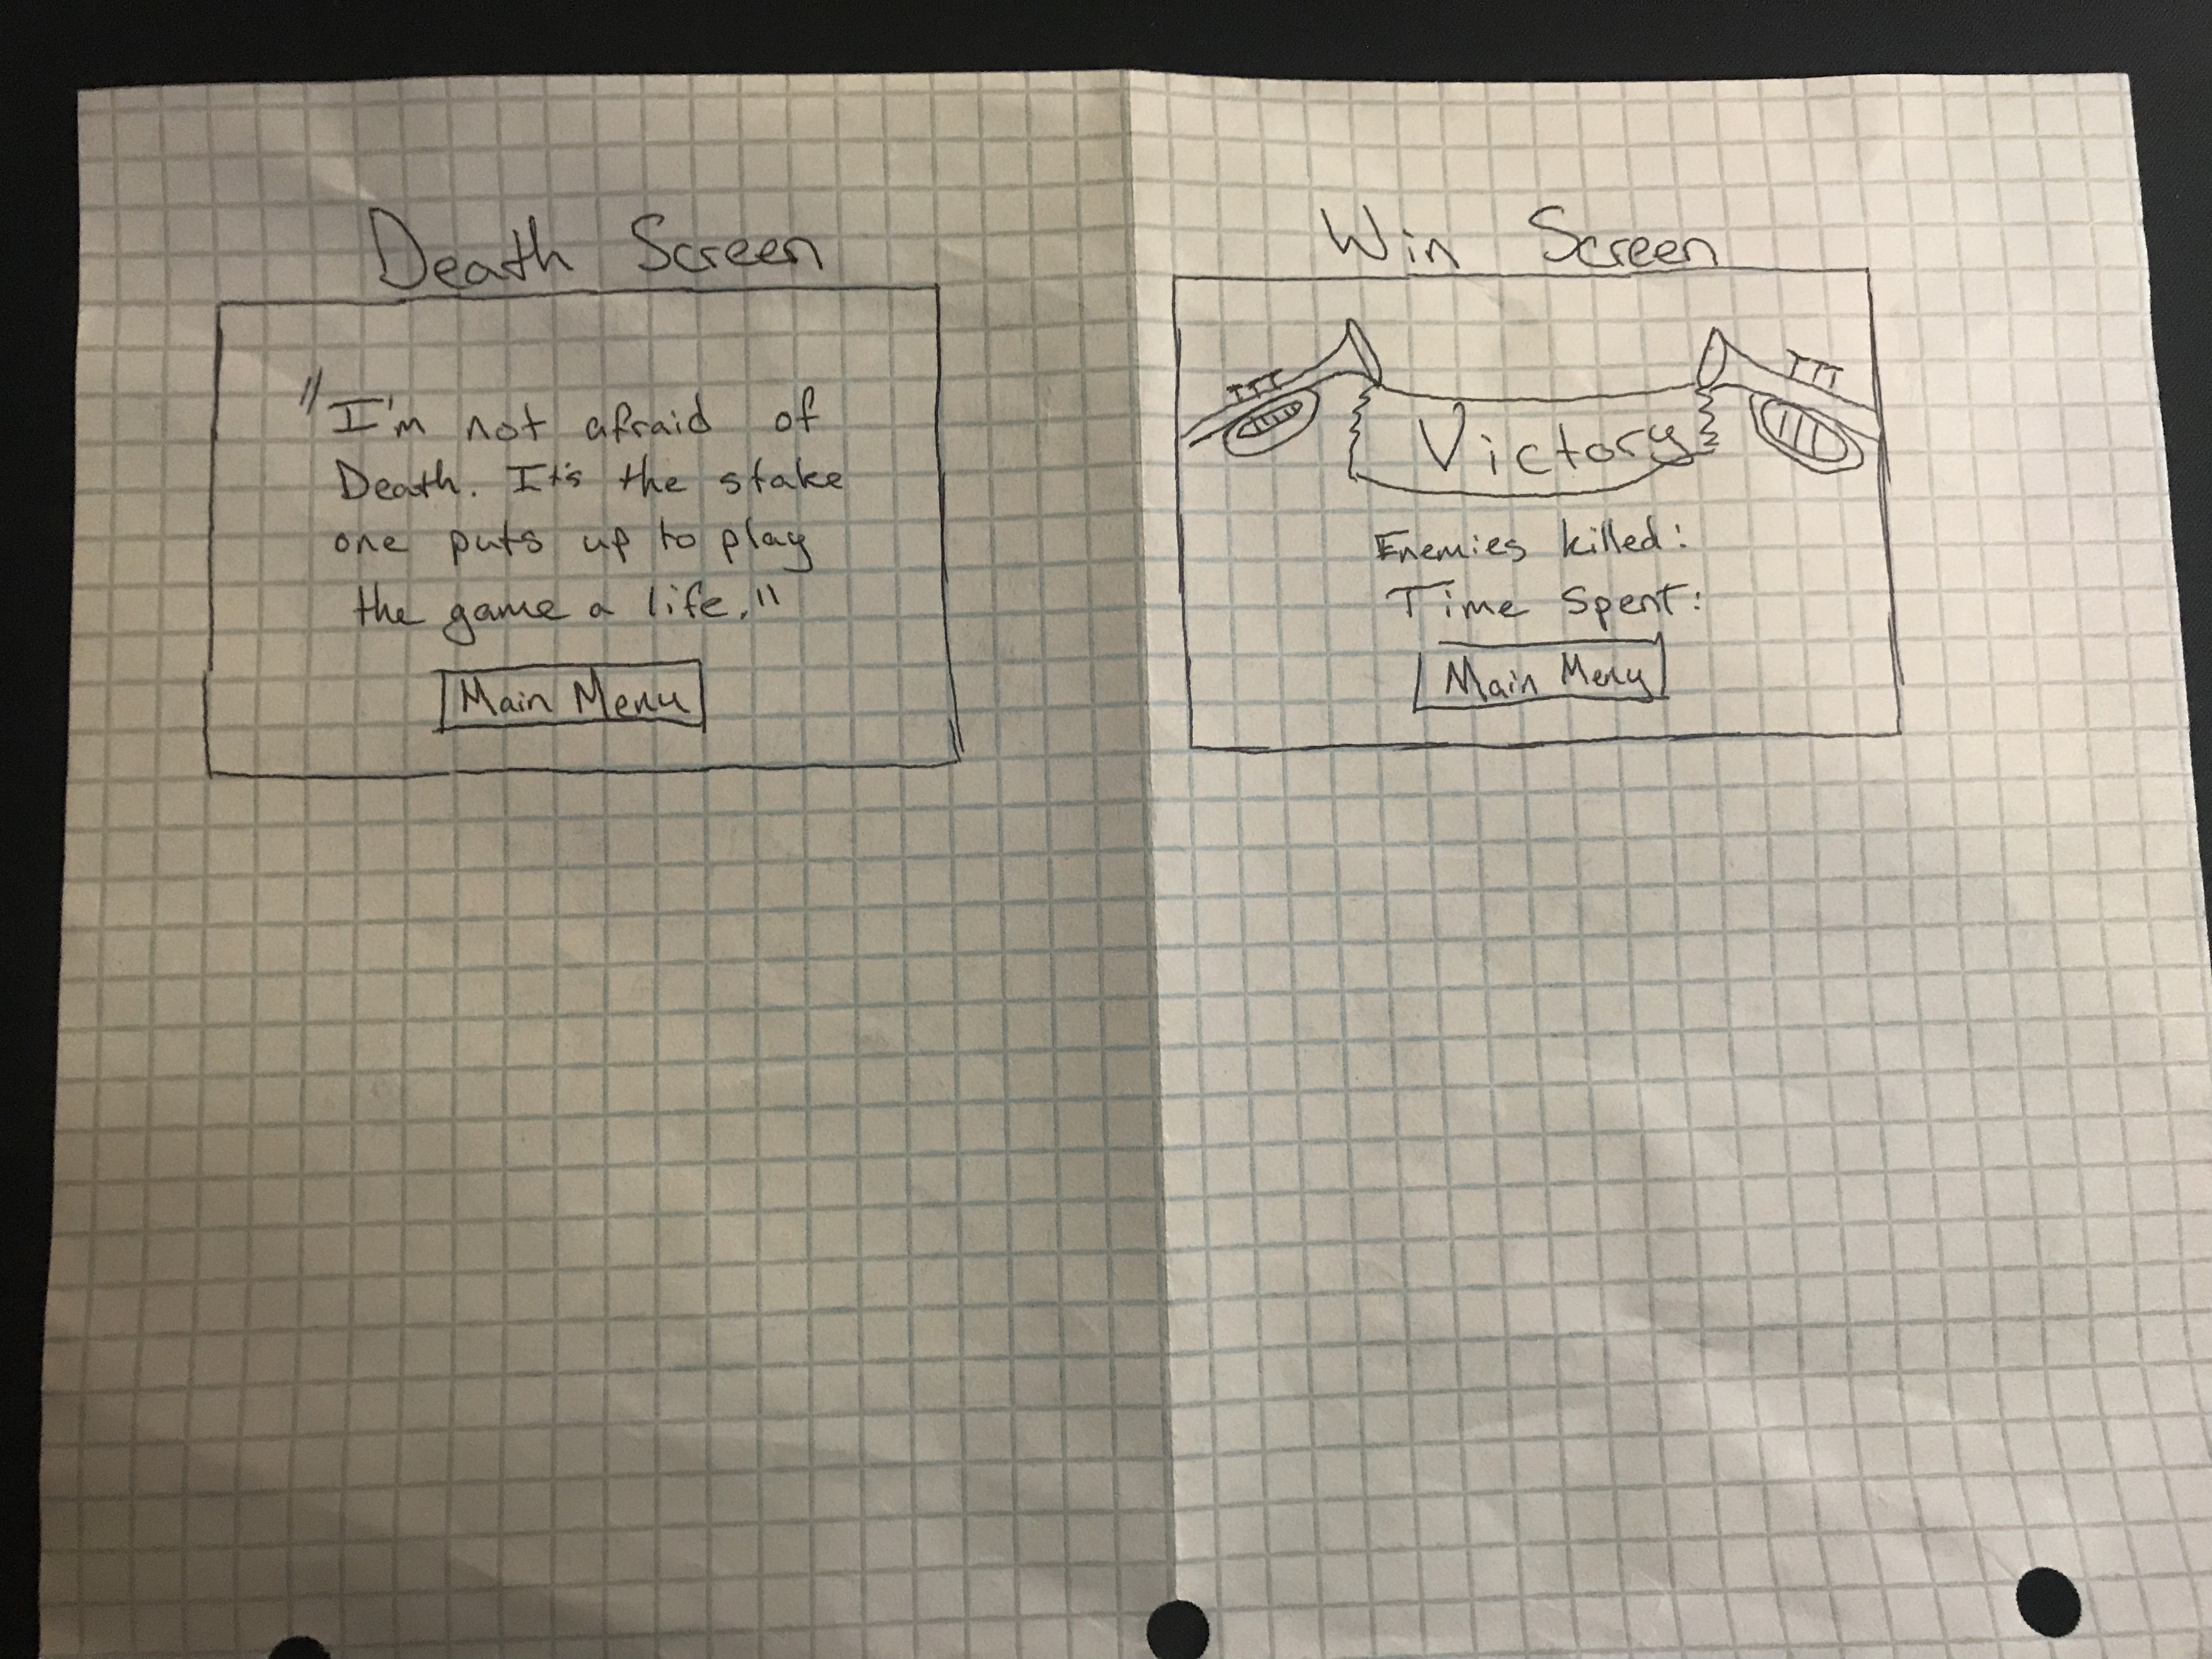 Death Screen
"I'm not afraid of
Death. It's the stake
one puts up to play
the game a life."
Main Menu
Win Screen
Victory
Enemies killed:
Time Spent:
Main Menu